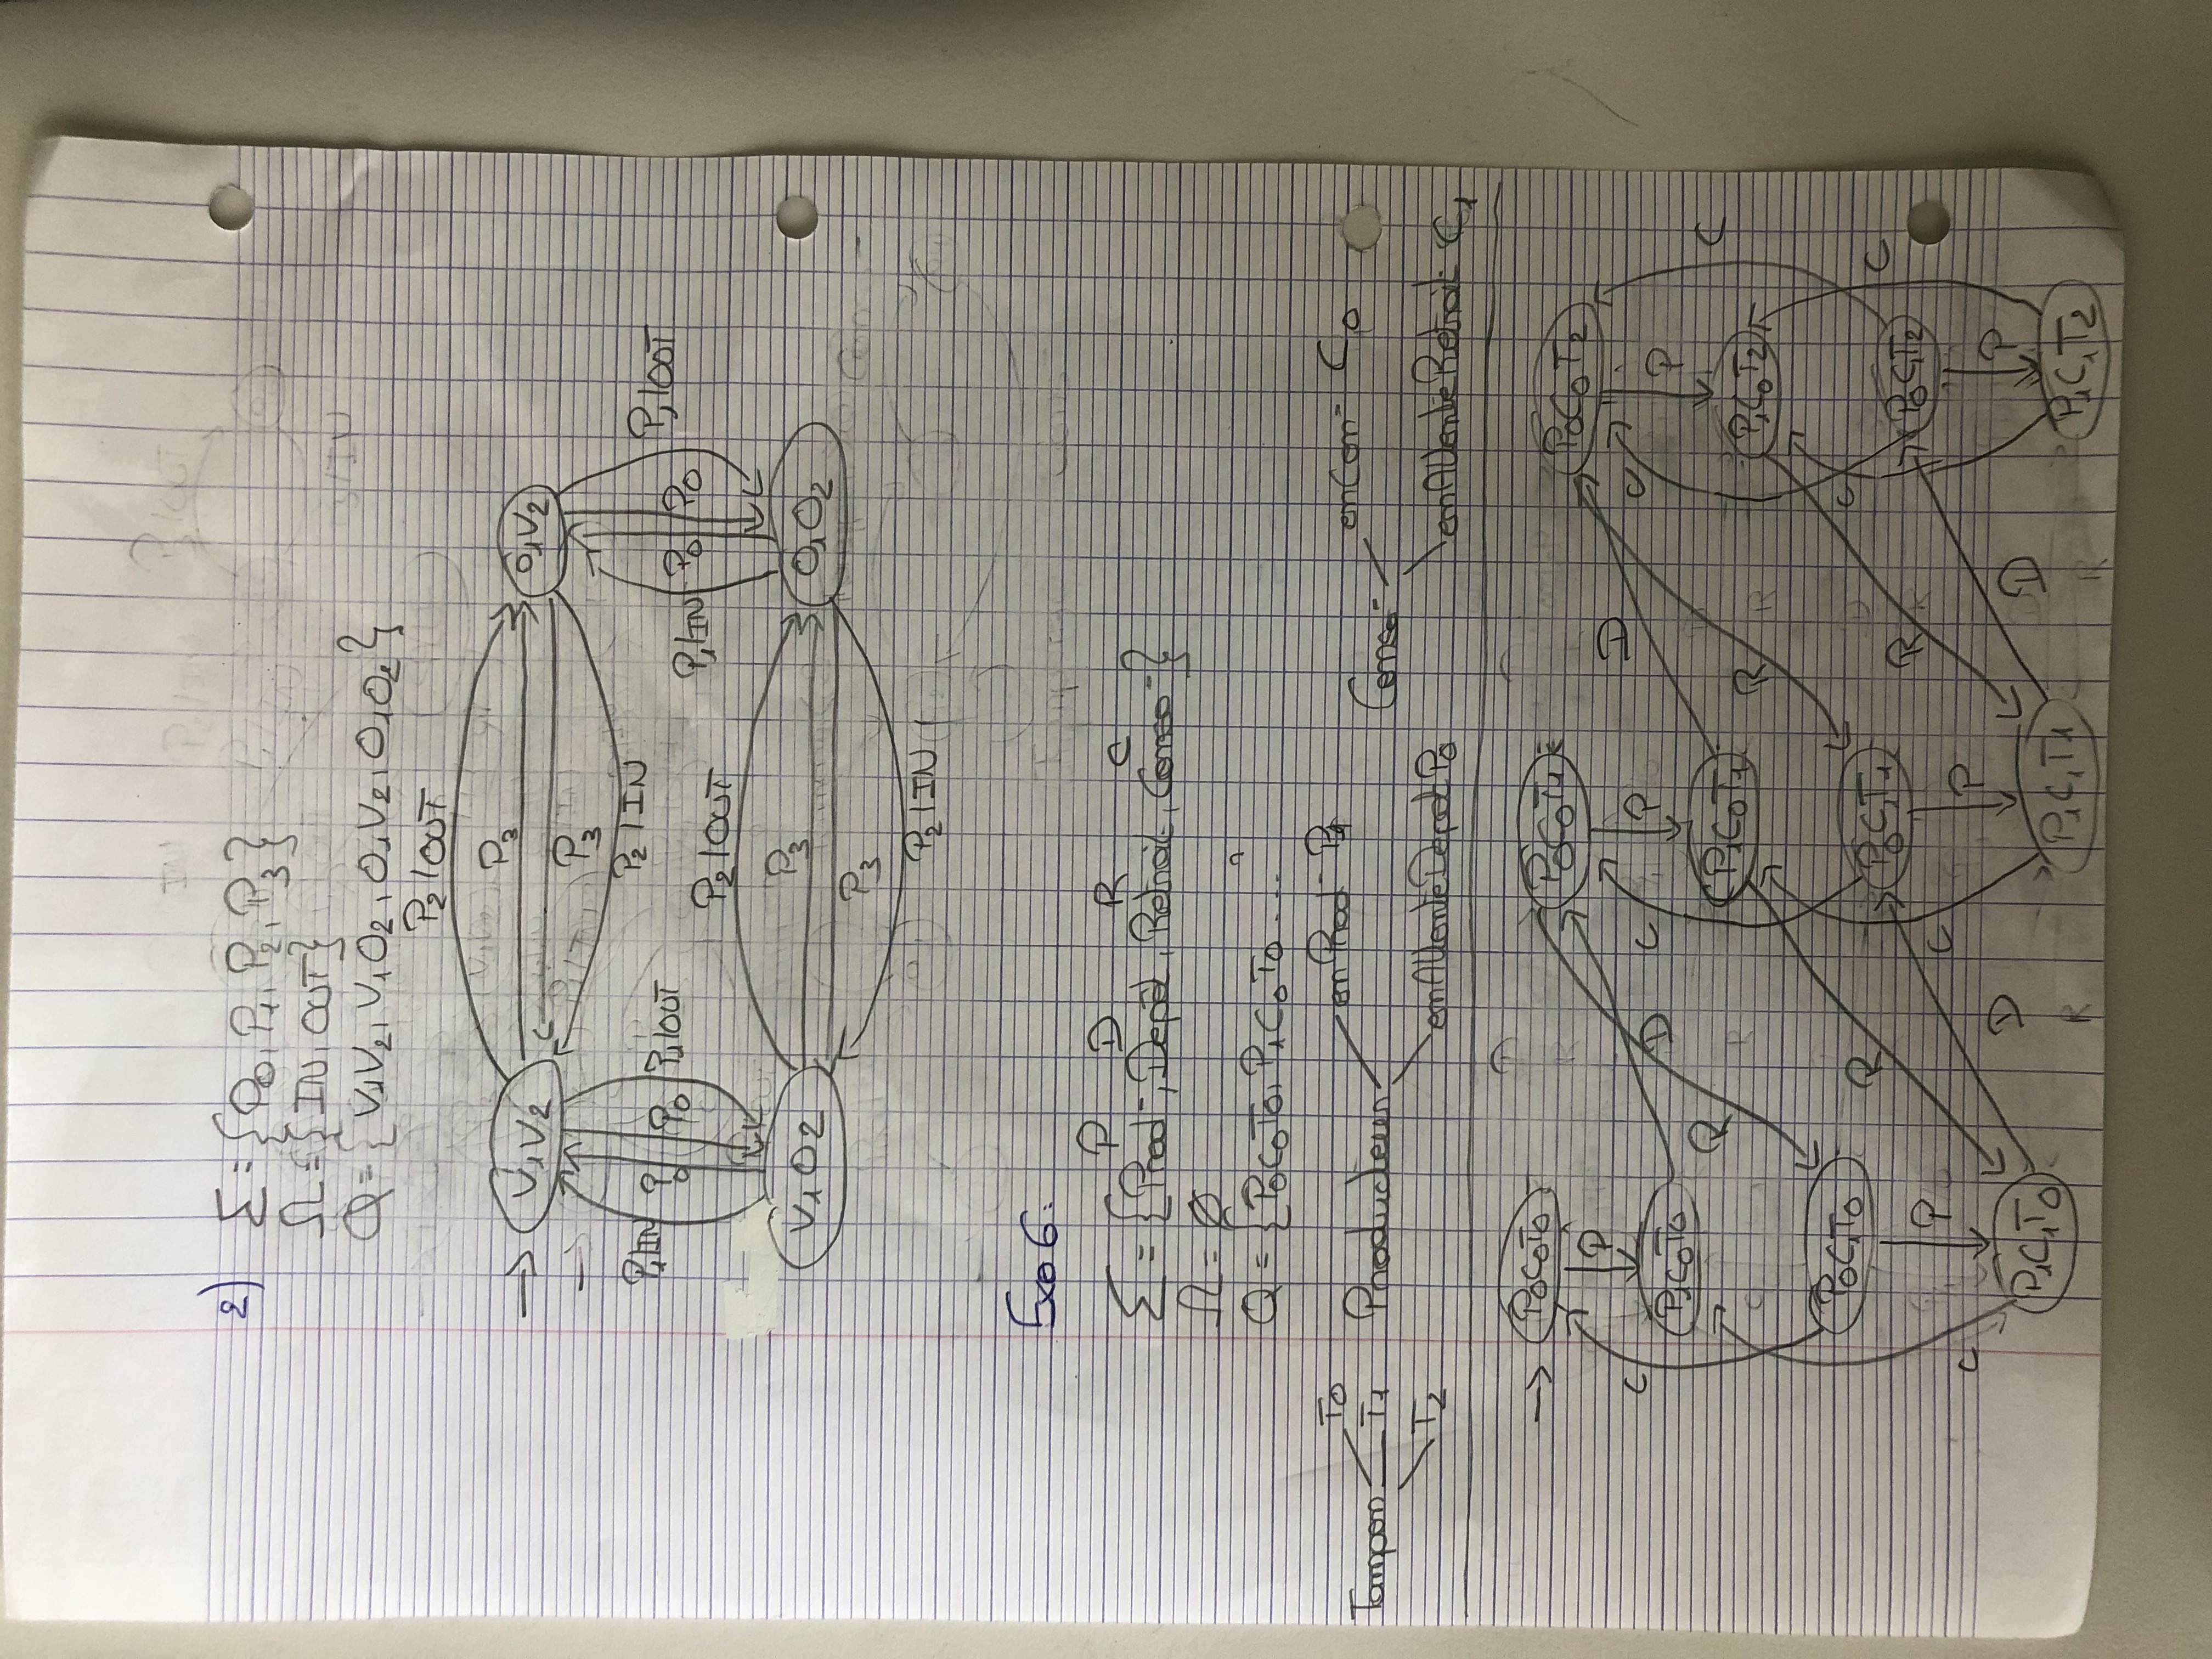 2) Σ = {P0, P1, P2, P3}
Ω = {IN, OUT}
Q = {V1V2, V1O2, O1V2, O1O2}
P2/OUT
→ V1V2 P3 O1V2
P3
P2/IN
P1/IN P0 P0 P1/OUT P1/IN P0 P0 P1/OUT
P2/OUT
V1O2 P3 O1O2
P3
P2/IN
Exo 6:
P D R C
Σ = {Prod, Depôt, Retrait, Conso}
Ω = Ø
Q = {P0C0T0, P1C0T0 ....}
Tampon T0 T1 T2
Producteur enProd P1
enAttenteDepot P0
Conso enCon C0
enAttenteRetrait C1
→ P0C0T0 P0C0T1 P0C0T2
C P D C P D C P
P1C0T0 R P1C0T1 R P1C0T2 C
P0C1T0 R P0C1T1 R C P0C1T2 C
C P D C P D P
P1C1T0 P1C1T1 P1C1T2